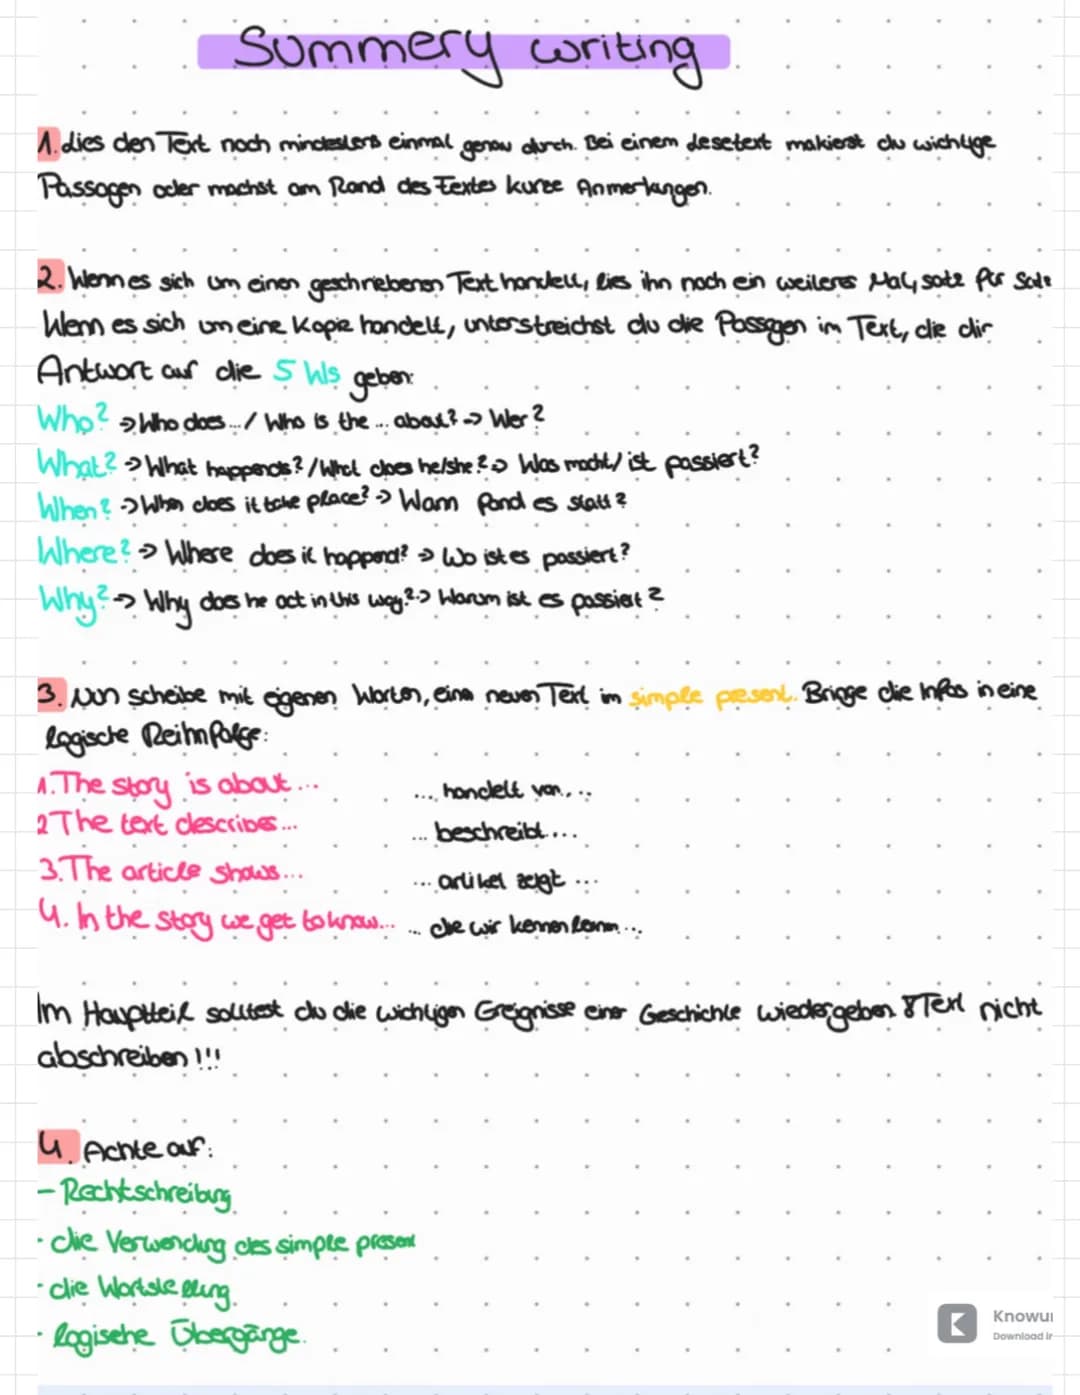 Summery writing
1. Lies den Text noch mindestens einmal genau durch. Bei einem Lesetext makierst du wichtige
Passagen oder machst am Rand des Textes kurze Anmerkungen.
2. Wenn es sich um einen geschriebenen Text handelt, lies ihn noch ein weiteres Mal, satz für Satz
Wenn es sich um eine Kopie handelt, unterstreichst du die Passagen im Text, die dir
Antwort auf die 5 Ws geben:
Who? → Who does.../ Who is the ... about? → Wer?
What? → What happends? / What does he/she? → Was macht/ ist passiert?
When? → When does it take place? → Wann fand es statt?
Where? → Where does it happend? → Wo ist es passiert?
Why? → Why does he act in this way? → Warum ist es passiert?
3. Nun scheibe mit eigenen Worten, eine neuen Text im simple present. Bringe die Infos in eine
logische Reihnfolge:
1. The story is about... ... handelt von...
2 The text describes... ... beschreibt...
3. The article shows... ... artikel zeigt ...
4. In the story we get to know... ... die wir kennen lernen...
Im Hauptteil solltest du die wichtigen Ereignisse einer Geschichte wiedergeben & Text nicht
abschreiben!!!
4. Achte auf:
- Rechtschreibung
- die Verwendung des simple present
- die Wortstellung
- logische Übergänge.
Knowu
Download ir